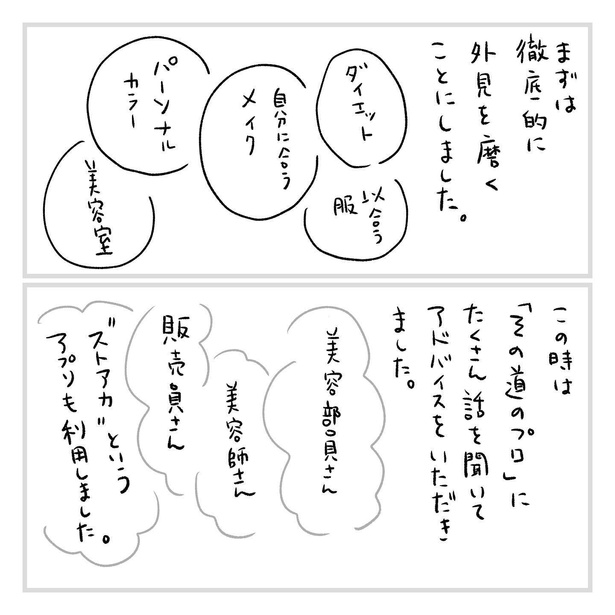 まずは
徹底的に
外見を磨く
ことにしました。
ダイエット
似合う
服
自分に合う
メイク
パーソナル
カラー
美容室
この時は
「その道のプロ」に
たくさん話を聞いて
アドバイスをいただき
ました。
美容部員さん
美容師さん
販売員さん
"ストアカ"という
アプリも利用しました。